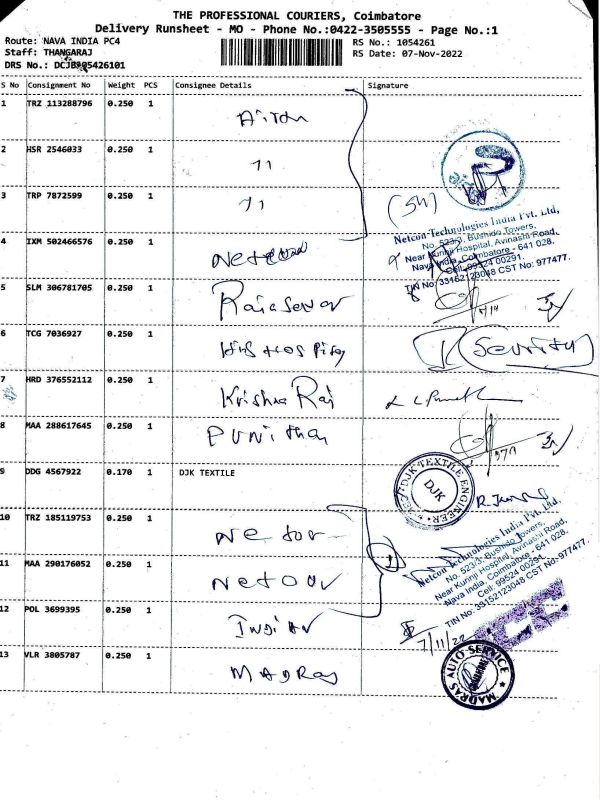 THE PROFESSIONAL COURIERS, Coimbatore
Delivery Runsheet - MO - Phone No.:0422-3505555 - Page No.:1
Route: NAVA INDIA PC4
RS No.: 1054261
Staff: THANGARAJ
RS Date: 07-Nov-2022
DRS No.: DCJB905426101
S No Consignment No Weight PCS Consignee Details Signature
1 TRZ 113288796 0.250 1
2 HSR 2546033 0.250 1 11
3 TRP 7872599 0.250 1 11
Netcon Technologies India Pvt. Ltd,
No. 523/3, Bushido Towers,
Near Kurinji Hospital, Avinashi Road,
Nava India, Coimbatore - 641 028.
Cell: 99524 00291.
TIN No: 33152123048 CST No: 977477.
4 IXM 502466576 0.250 1
5 SLM 306781705 0.250 1
6 TCG 7036927 0.250 1
7 HRD 376552112 0.250 1 Krishna Raj
8 MAA 288617645 0.250 1 PUNITHA
9 DDG 4567922 0.170 1 DJK TEXTILE
DJK TEXTILE ENGINEER
DJK
10 TRZ 185119753 0.250 1
Netcon Technologies India Pvt. Ltd,
No. 523/3, Bushido Towers,
Near Kurinji Hospital, Avinashi Road,
Nava India, Coimbatore - 641 028.
Cell: 99524 00291.
TIN No: 33152123048 CST No: 977477.
11 MAA 290176052 0.250 1
12 POL 3699395 0.250 1 INDIAN
7/11/22
13 VLR 3805787 0.250 1 MADRAS
MADRAS AUTO SERVICE